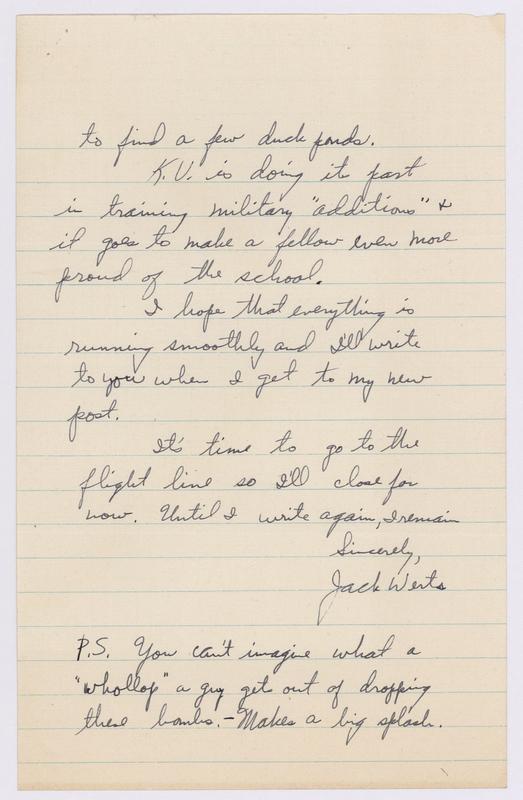 to find a few duck ponds.
K.U. is doing its part
in training military "additions" &
it goes to make a fellow even more
proud of the school.
I hope that everything is
running smoothly and I'll write
to you when I get to my new
post.
It's time to go to the
flight line so I'll close for
now. Until I write again, I remain
Sincerely,
Jack Werts
P.S. You can't imagine what a
"whollop" a guy gets out of dropping
these bombs. - Makes a big splash.